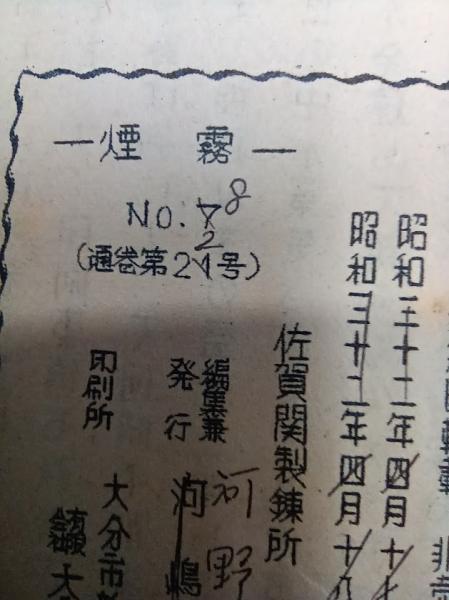 一煙 霧一
NO.7 8
(通巻第21 2号)
昭和三十二年四月十
昭和三十二年四月十八
佐賀関製錬所
編集兼
発行
河野
印刷所
大分市
大